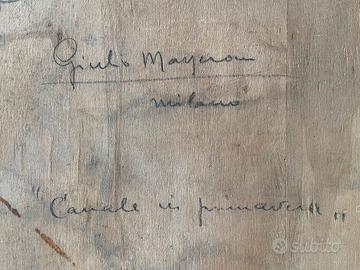 Giulio
Milano
"Canale in primavera"
subito